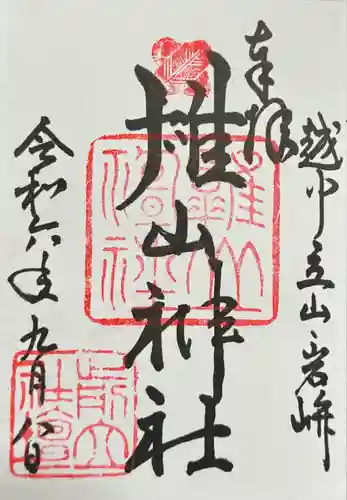 奉拝
越中立山岩峅
雄山神社
令和六年九月八日
雄山神社
前立社壇